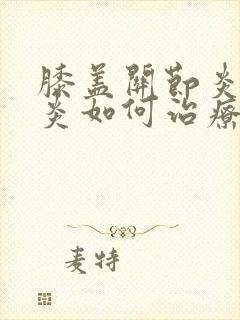 膝盖關節炎
炎如何治療
麦特